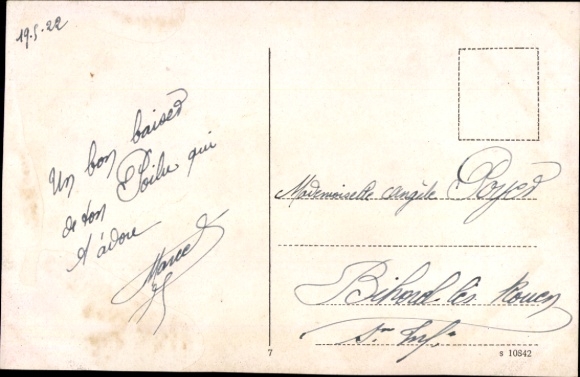 19.5.22
Un bon baiser
de ton Poilu qui
t'adore
Marcel
Mademoiselle Angèle
Bihorel-lès Rouen
Sne Infre
7
S 10842